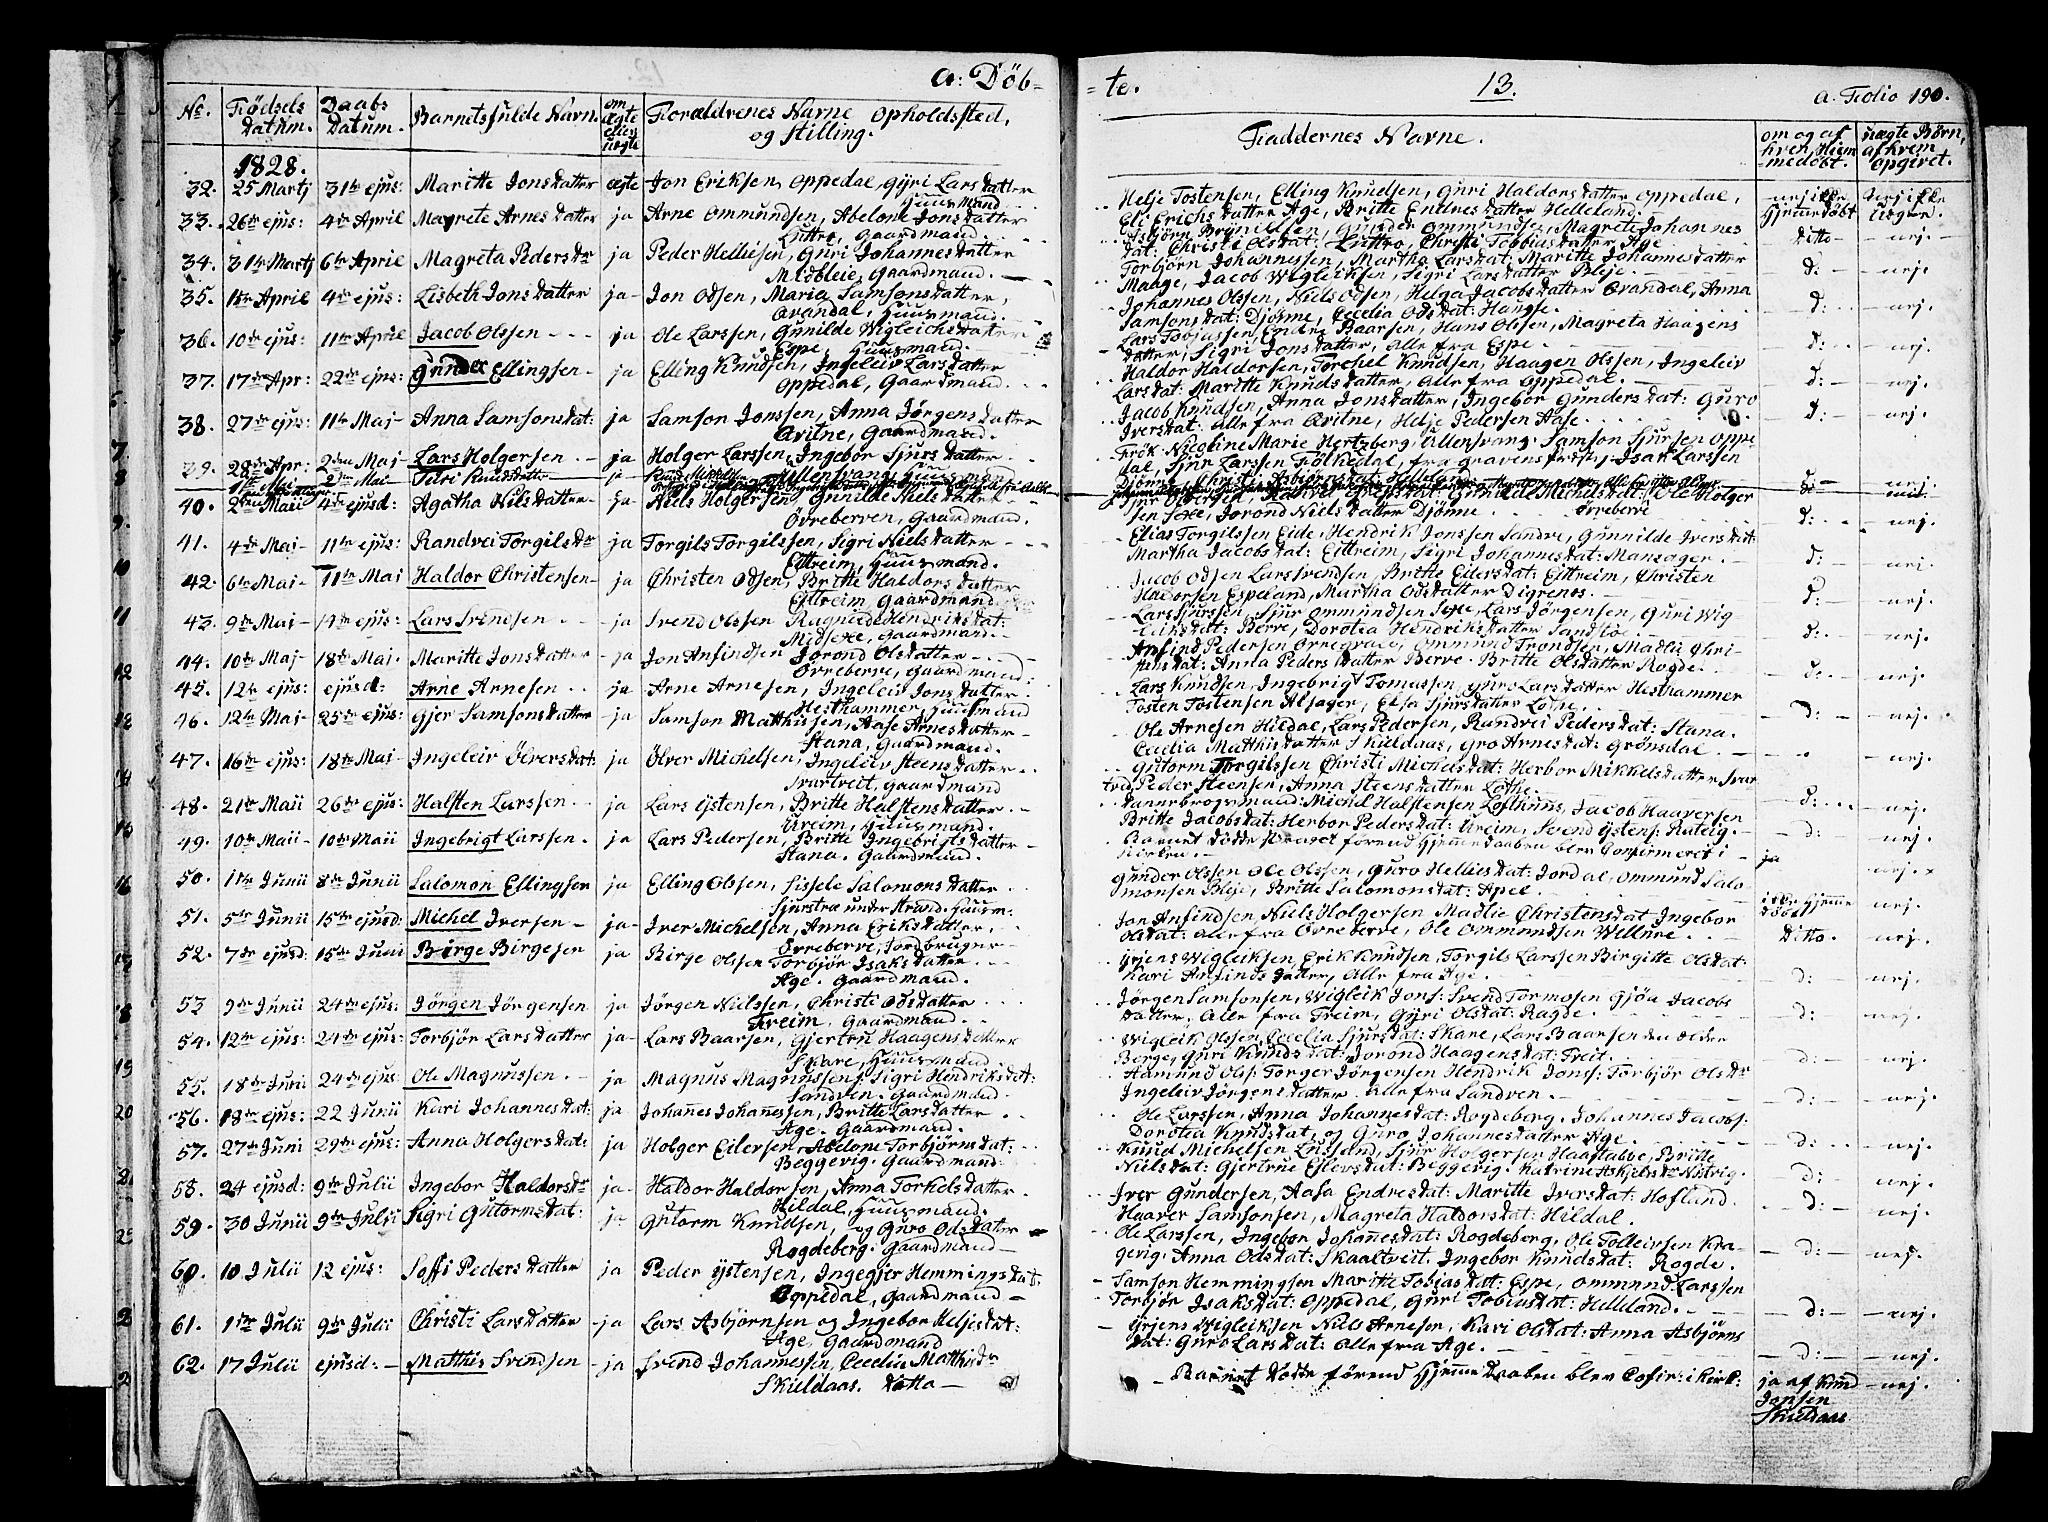 a: Döb-
No.
Födsels Datum.
Daabs Datum.
Barnets fulde Navn.
om ægte eller uægte
Forældrenes Navne Opholdssted, og Stilling.
1828.
32. 25 Martj 31te ejus: Maritte Jonsdatter ægte Jon Eriksen, Oppedal, Gyri Larsdatter
Huusmand.
33. 26de ejus: 4de April Magrete Arnesdatter ja Arne Ommundsen, Abelone Jonsdatter
Luttro, Gaardmand.
34. 31te Martj 6te April Magreta Pedersdr ja Peder Helliesen, Guri Johannesdatter
Midbleie, Gaardmand.
35. 1ste April 4de ejus: Lisbeth Jonsdatter ja Jon Odsen, Maria Samsonsdatter,
Qvandal, Huusmand.
36. 10de ejus: 11te April Jacob Olssen ja Ole Larssen, Gunilde Wigleichsdatter
Espe, Huusmand.
37. 17de Apr: 22de ejus: Gunder Ellingsen ja Elling Knudsen, Ingeleiv Larsdatter
Oppedal, Gaardmand.
38. 27de ejus: 11te Maj Anna Samsonsdat: ja Samson Jonssen, Anna Jörgensdatter
Qvitne, Gaardmand.
39. 28de Apr: 2den Maj Lars Holgersen ja Holger Larssen, Ingebor Sjursdatter
Ullensvang, Huusmand
40. 2den Maii 4de ejusd: Agatha Nilsdatter ja Niels Holgersen, Gunilde Nielsdatter
Övreberven, Gaardmand.
41. 4de Maj 11te ejus: Randvei Torgilsdr ja Torgils Torgilssen, Sigri Nielsdatter
Eittreim, Huusmand.
42. 6te Maj 11te Maj Haldor Christensen ja Christen Odsen, Britte Haldorsdatter
Eittreim, Gaardmand
43. 9de Maj 14de ejus: Lars Svendsen ja Svend Olssen Ragnilde Hendriksdat:
Midsexe, Gaardmand.
44. 10de Maj 18de Maj. Maritte Jonsdatter ja Jon Anfindsen Jorond Olsdatter
Övreberve, Gaardmand:
45. 12te ejus: ejusd: Arne Arnesen ja Arne Arnesen, Ingeleiv Jonsdatter
Hesthammer, Huusmand
46. 12te Maj 25de ejus: Gjer Samsonsdatter ja Samson Matthissen, Aase Arnesdatter
Stana, Gaardmand.
47. 16de ejus: 18de Maj Ingeleiv Ölversdat: ja Ölver Michelsen, Ingeleiv Steensdatter
Svartveit, Gaardmand
48. 21de Maii 26de ejus: Halsten Larssen ja Lars Ystensen, Britte Halstensdatter
Ureim, Huusmand.
49. 10de Maii 10de Maii Ingebrigt Larssen. ja Lars Pedersen, Britte Ingebrigtsdatter
Stana. Gaardmand.
50. 1ste Junii 8de Junii Salomon Ellingsen ja Elling Olssen, Sissele Salomonsdatter
Sjurstræ under Strand. Huusm:
51. 5te Junii 15de ejusd: Michel Iversen ja Iver Michelsen, Anna Eriksdatter,
Övreberve, Jordbruger
52. 7de ejusd: 15de Junii Birge Birgesen ja Birge Olssen Torbjör Isaksdatter
Age. Gaardmand.
53 9de Junii 24de ejus: Jörgen Jörgensen ja Jörgen Nielssen, Christi Odsdatter
Freim, Gaardmand.
54. 12te ejus: 24de ejus: Torbjör Larsdatter ja Lars Baarsen, Gjertru Haagensdatter
Skare, Huusmand
55. 18de Junii 24de ejus: Ole Magnussen ja Magnus Magnussen, Sigri Hendriksdat:
Sandven. Gaardmand.
56. 18de ejus: 22 Junii Kari Johannesdat: ja Johanes Johanessen, Britte Larsdatter
Age. Gaardmand.
57. 27de Juni 29de ejus: Anna Holgersdat: ja Holger Eilersen, Abelone Torbjörnsdat:
Beggevig. Gaardmand:
58. 24 ejusd: 9de Julii Ingebor Haldorsdr ja Haldor Haldorsen, Anna Torkelsdatter
Hildal, Huusmand.
59. 30 Junii 9de Julii Sigri Gutormsdat: ja Gutorm Knudsen, og Guro Odsdatter
Rogdeberg. Gaardmand
60. 10 Julii 12 ejus: Soffi Pedersdatter ja Peder Ystensen, Ingegjer Hemmingsdat:
Oppedal, Gaardmand
61. 1ste Julii 9de Julii Christi Larsdatter ja Lars Asbjörnsen og Ingebor Heljesdat:
Age, Gaardmand
62. 17 Julii ejusd: Matthis Svendsen ja Svend Johannessen, Cecelia Matthisdr
Skieldaas. Ditto
te.
13.
a. Folio 190.
Faddernes Navne.
om og af hvem Hiemmedöbt.
uægte Börn, af hvem opgivet.
Helje Tostensen, Elling Knudsen, Guri Haldorsdatter Oppedal,
Eli Erichsdatter Age, Britte Endresdatter Helleland. nej ikke Hjemmedöbt
Asbjörn Brynildsen, Gunder Ommundsen, Magrete Johannes
dat: Christi Olsdat: Luttro, Christi Tobiasdatter Age Ditto nej.
Torbjörn Johannessen, Martha Larsdat: Maritte Johannesdatter
Maage, Jacob Wigleiksen, Sigri Larsdatter Bleje. d: nej.
Johannes Olssen, Niels Odsen, Helga Jacobsdatter Qvandal, Anna
Samsonsdat: Djönne, Cecelia Odsdat: Haugse. d: nej.
Lars Torjussen, Endre Baarsen, Hans Olsen, Magreta Haagens
datter, Sigri Jonsdatter, alle fra Espe. d: nej.
Haldor Haldorsen, Torchel Knudsen, Haagen Olssen, Ingeleiv
Larsdat: Maritte Knudsdatter, alle fra Oppedal. d: nej.
Jacob Knudsen, Anna Jonsdatter, Ingebor Gundersdat: Guro
Iversdat: alle fra Qvitne, Helje Pedersen Aase. d: nej.
Frök: Nicoline Marie Hertzberg, Ullensvang. Samson Sjursen Oppe
dal, Sjur Larssen Folkedal, fra Gravens Præstg: Isak Larssen
Djönne, d: nej.
Ole Holger
sen Sexe, Jorond Nielsdatter Djönne. Övreberve d: nej.
Elias Torgilssen Eide, Hendrik Jonssen Sandve, Gunnilde Iversdat:
Martha Jacobsdat: Eittreim, Sigri Johannesdat: Mansager. d: nej.
Jacob Odsen Lars Svendsen, Brithe Eilersdat: Eittreim, Christen
Haldorsen Espeland, Martha Odsdatter Digrenes. d: nej.
Lars Sjurssen, Sjur Ommundsen Sexe, Lars Jörgensen, Guri Wig
leiksdat: Berve, Dorotea Hendriksdatter Sandstöe. d: nej.
Anfind Pedersen Ommund Trondsen, Madli Chri-
stensdat: Anna Pedersdatter Berve. Britte Olsdatter Rogde. d: nej.
Lars Knudsen, Ingebrigt Tomassen, Guro Larsdatter Hesthammer
Tosten Tostensen Alsager, Elsa Sjursdatter Lothe. d: nej.
Ole Arnesen Hildal, Lars Pedersen, Randvei Pedersdat: Stana.
Cecelia Matthisdatter Skieldaas, Gro Arnesdat: Grönsdal. nej.
Gutorm Torgilssen Christi Michelsdat: Herbor Mikkelsdatter Svar
tveit, Peder Steensen, Anna Steensdatter Lothe. d: nej.
Dannebrogsmand: Michel Halstensen Lofthuus, Jacob Haaversen
Britte Jacobsdat: Herbor Pedersdat: Ureim, Svend Ystens: Rateig. d: nej.
Barnet Döde förend Hjemme Daaben blev Confirmeret i
Kirken. ja nej.
Gunder Olssen Ole Olssen, Guro Helliesdat: Jordal, Ommund Salo-
monsen Bleje, Britte Salomonsdat: Apel. ikke Hjemme döbt nej.
Jon Anfindsen, Niels Holgersen Madlie Christensdat Ingebor
Olsdat: alle fra Övreberve, Ole Ommundsen Willure. Ditto. nej.
Yrjens Wigleiksen, Erik Knudsen, Torgils Larssen Birgitte Olsdat:
Kari Anfindsdatter, alle fra Age. d: nej.
Jörgen Samsonsen, Wigleik Jons: Svend Tormosen Gjöa Jacobs
datter, alle fra Freim, Gyri Olsdat: Ragde. d: nej.
Wigleik Olsen, Cecelia Sjursdat: Skare, Lars Baarsen den Ældre
Berge, Guri Knudsdat: Jorond Haagensdat: Freit. d: nej.
Aamund Ols: Torger Jörgensen Hendrik Jons: Torbjör Olsdr
Ingeleiv Jörgensdatter. alle fra Sandven. d: nej.
Ole Larssen, Anna Johannesdat: Rogdeberg. Johannes Jacobs:
Dorotea Knudsdat, og Guro Johannesdatter Age. d: nej.
Knud Michelsen Lussand, Sjur Holgersen Haastabbe, Britte
Nielsdat: Gjertrue Eslevsdat: Beggevig. Katrine Askjelsdr Nistvig. d: nej.
Iver Gundersen, Aasa Endresdat: Maritte Iversdat: Hofland.
Haaver Samsonsen, Magreta Haldorsdat: Hildal. d: nej.
Ole Larssen, Ingebor Johanesdat: Rogdeberg, Ole Tolleivsen Kra-
gevig. Anna Odsdat: Skaaltveit, Ingebor Knudsdat: Rogde. d: nej.
Samson Hemmingsen Maritte Tobiasdat: Espe, Ommund Larssen
Torbjör Isaksdat: Oppedal, Guri Tobiasdat: Helleland. d: nej.
Yrjens Wigleiksen Niels Arnesen, Kari Olsdat: Anna Asbjörns
dat: Guro Larsdat: alle fra Age. d: nej.
Barnet Döde förend Hjemme Daaben blev Cofir: i Kirk: ja af Knud nej.
Jonsen
Skieldaas